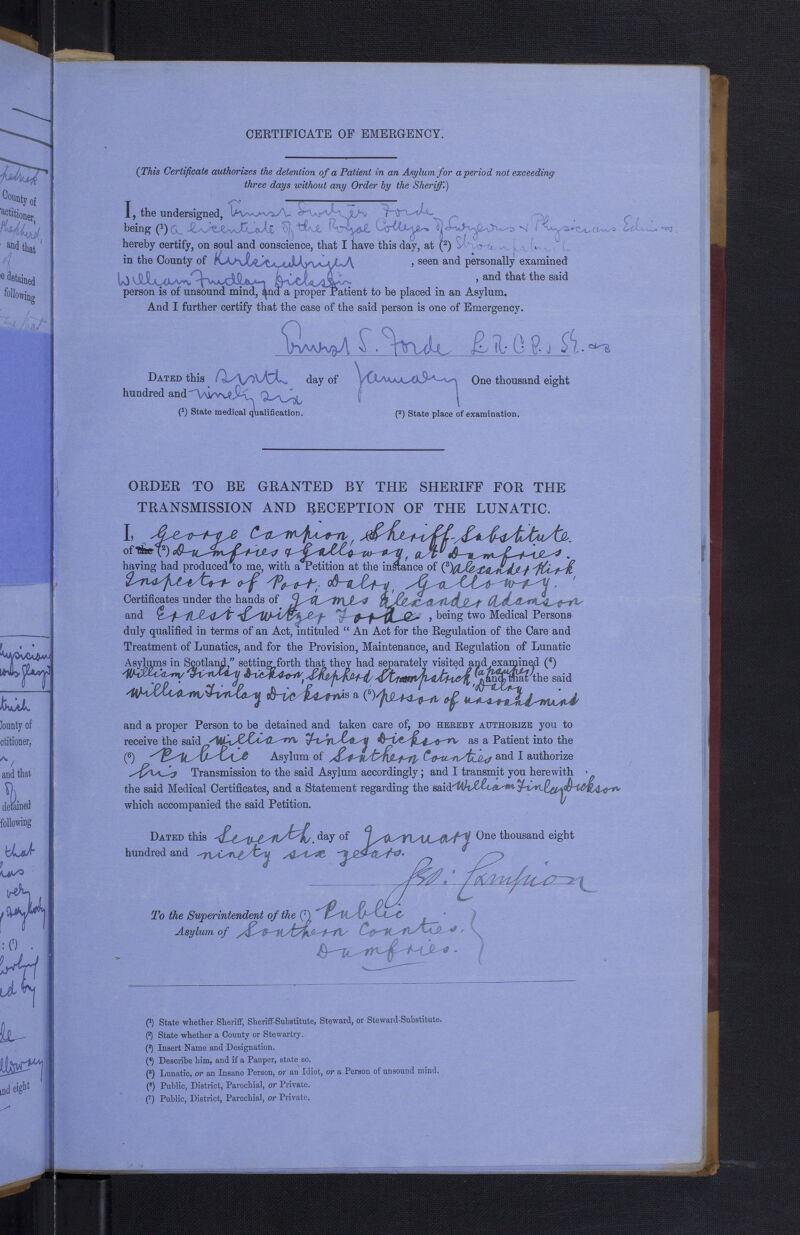 CERTIFICATE OF EMERGENCY.
(This Certificate authorizes the detention of a Patient in an Asylum for a period not exceeding
three days without any Order by the Sheriff.)
I, the undersigned, Ernest Switzer Forde
being (¹) a Licentiate of the Royal Colleges of Surgeons & Physicians
hereby certify, on soul and conscience, that I have this day, at (²)
in the County of Kirkcudbright , seen and personally examined
William Findlay Dickson , and that the said
person is of unsound mind, and a proper Patient to be placed in an Asylum.
And I further certify that the case of the said person is one of Emergency.
Ernest S. Forde L.R.C.P. &
DATED this sixth day of January One thousand eight
hundred and ninety six
(¹) State medical qualification. (²) State place of examination.
ORDER TO BE GRANTED BY THE SHERIFF FOR THE
TRANSMISSION AND RECEPTION OF THE LUNATIC.
I, George Campion, Sheriff-Substitute.
of the (²) Dumfries & Galloway, at Dumfries.
having had produced to me, with a Petition at the instance of (³) Alexander Kirk
Inspector of Poor, Dalry, Galloway.
Certificates under the hands of James Alexander Adamson
and Ernest Switzer Forde , being two Medical Persons
duly qualified in terms of an Act, intituled “ An Act for the Regulation of the Care and
Treatment of Lunatics, and for the Provision, Maintenance, and Regulation of Lunatic
Asylums in Scotland,” setting forth that they had separately visited and examined (⁴)
William Finlay Dickson, Shepherd Stroanpatrick, Dalry (a pauper) and that the said
William Finlay Dickson is a (⁵) person of unsound mind
and a proper Person to be detained and taken care of, DO HEREBY AUTHORIZE you to
receive the said William Finlay Dickson as a Patient into the
(⁶) Public Asylum of Southern Counties and I authorize
his Transmission to the said Asylum accordingly; and I transmit you herewith
the said Medical Certificates, and a Statement regarding the said William Finlay Dickson
which accompanied the said Petition.
DATED this Seventh. day of January One thousand eight
hundred and ninety six years.
Geo: Campion
To the Superintendent of the (⁷) Public
Asylum of Southern Counties.
Dumfries.
(¹) State whether Sheriff, Sheriff-Substitute, Steward, or Steward-Substitute.
(²) State whether a County or Stewartry.
(³) Insert Name and Designation.
(⁴) Describe him, and if a Pauper, state so.
(⁵) Lunatic, or an Insane Person, or an Idiot, or a Person of unsound mind.
(⁶) Public, District, Parochial, or Private.
(⁷) Public, District, Parochial, or Private.
County of
and that
detained
following
County of
and that
detained
following
that
very
and eight